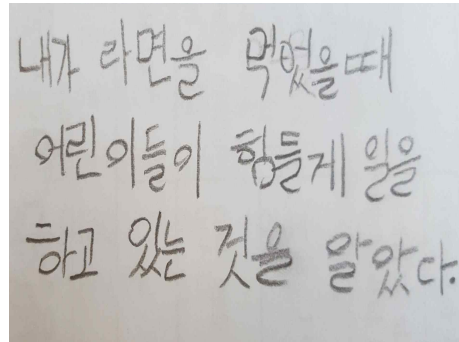 내가 라면을 먹었을때
어린이들이 힘들게 일을
하고 있는 것을 알았다.